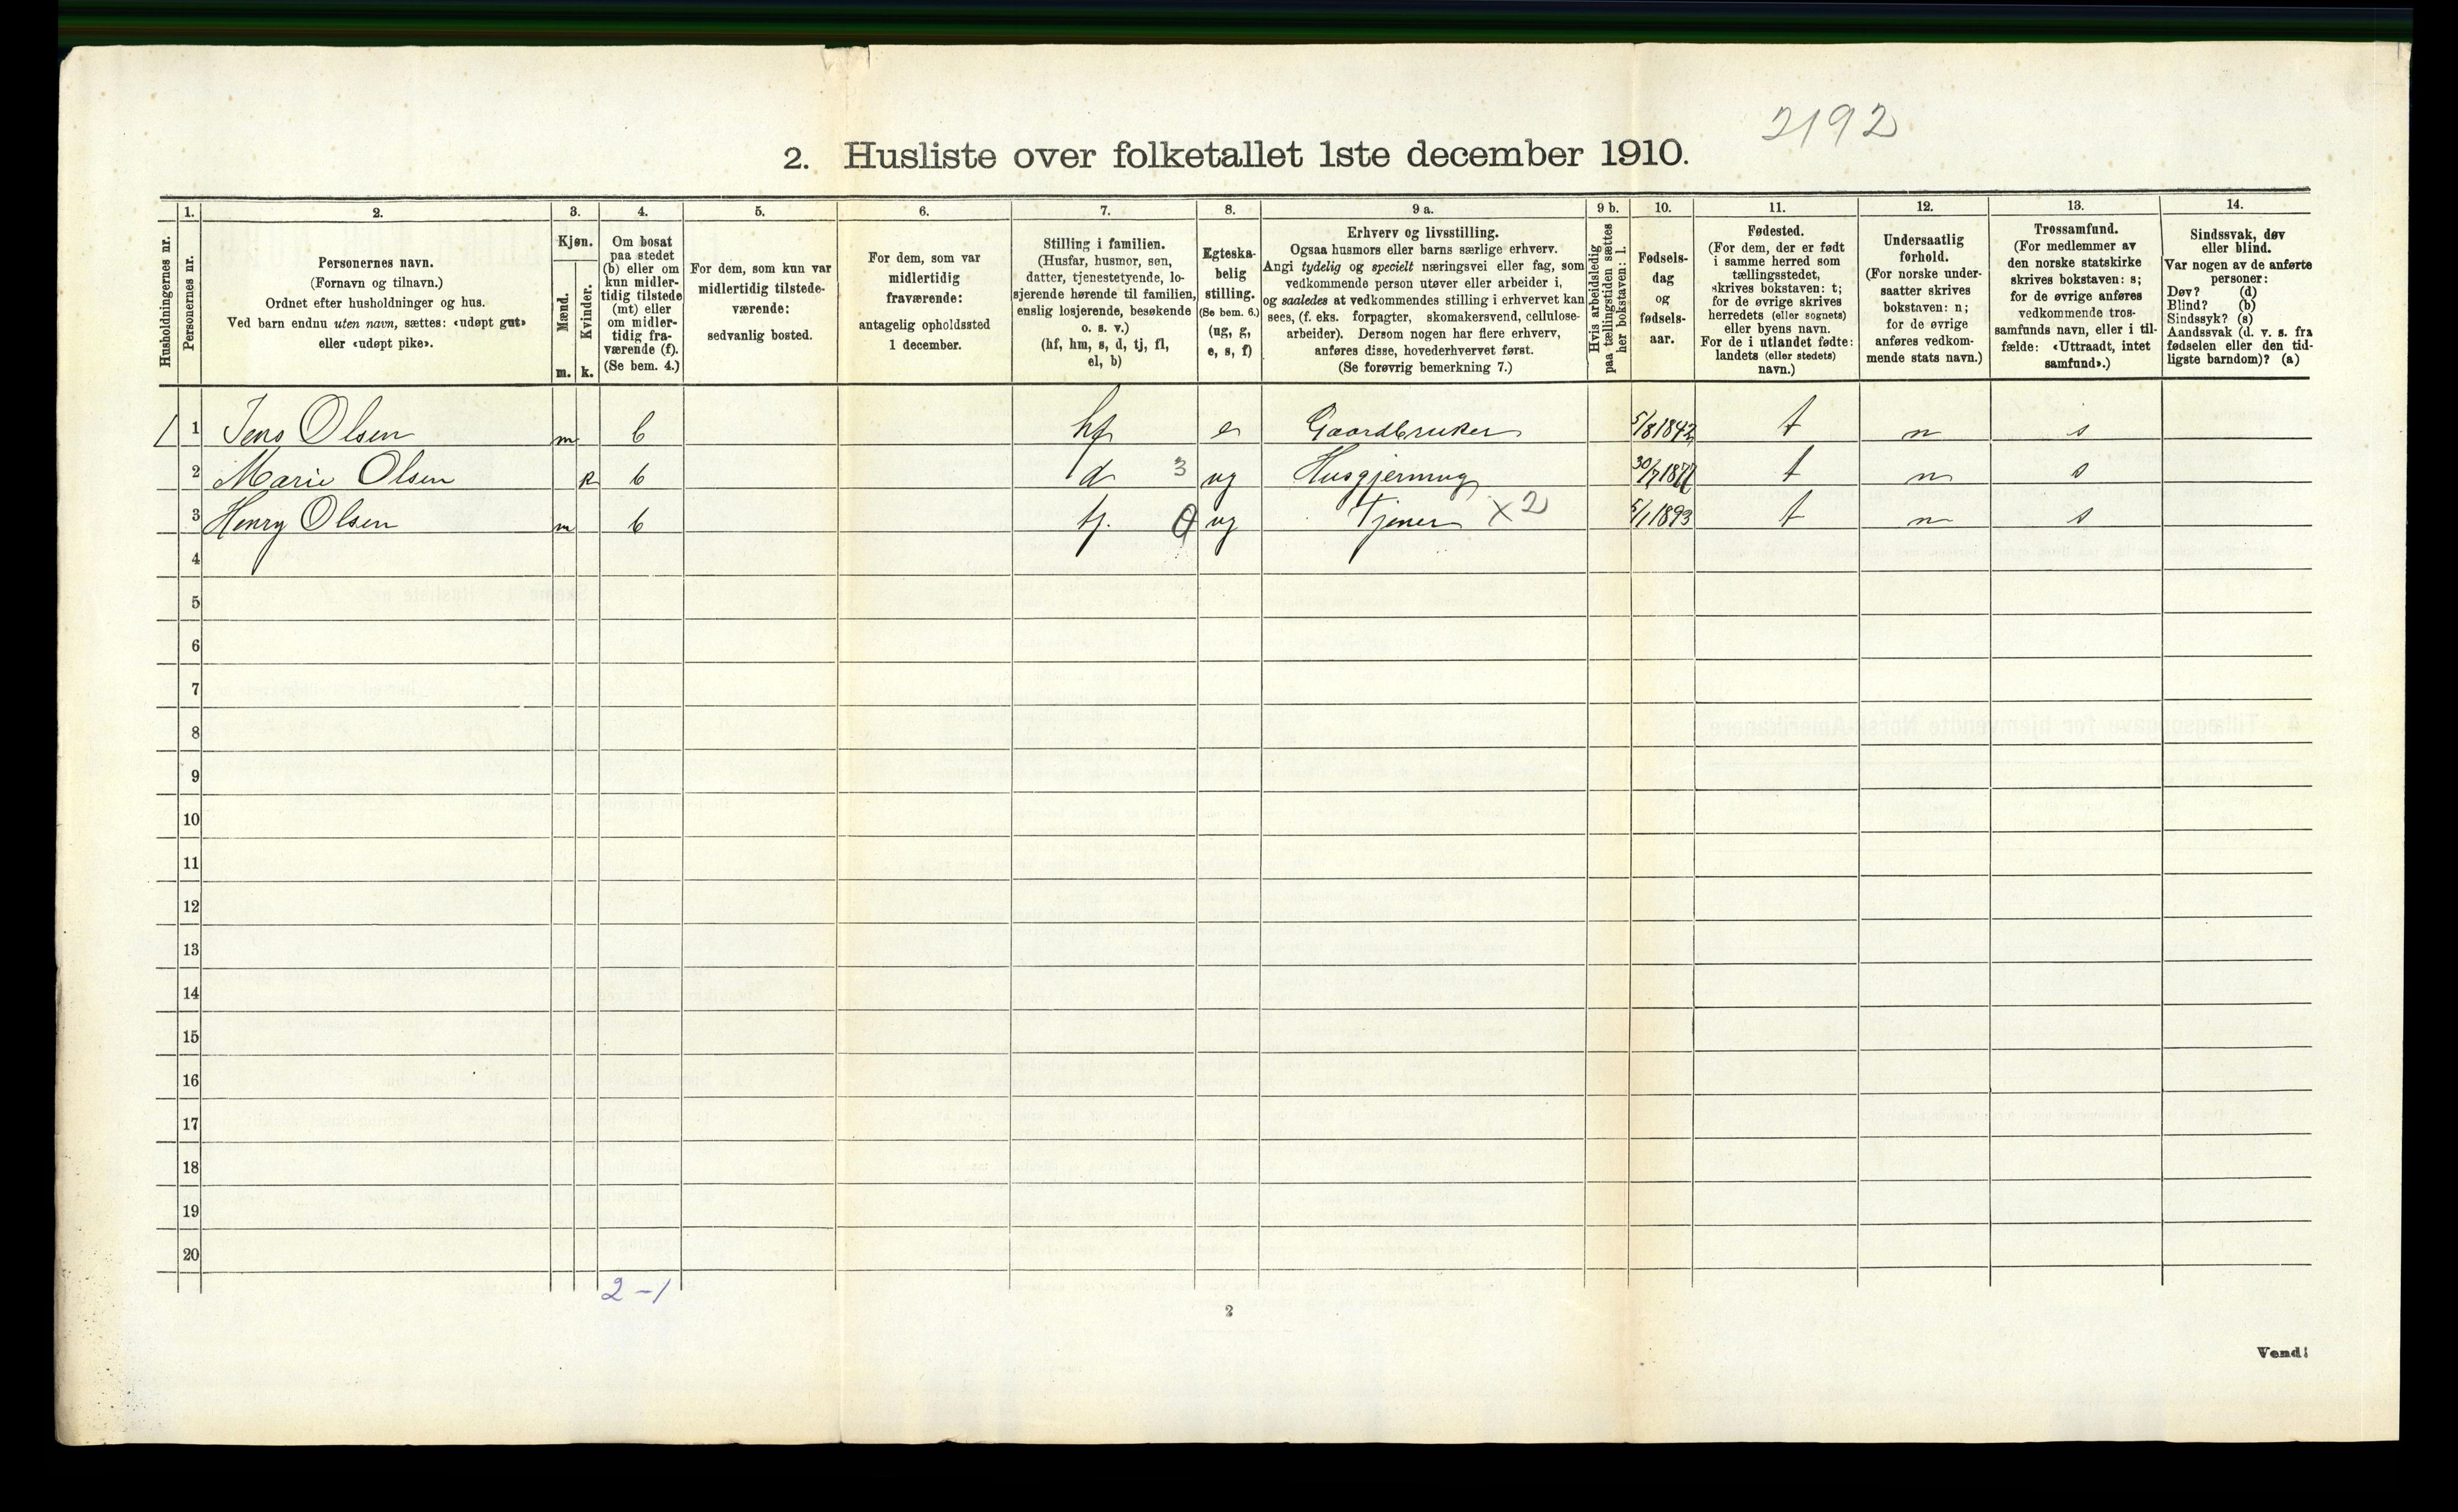 2192
2. Husliste over folketallet 1ste december 1910.
Husholdningernes nr.
1.
Personernes nr.
2.
Personernes navn.
(Fornavn og tilnavn.)
Ordnet efter husholdninger og hus.
Ved barn endnu uten navn, sættes: «udøpt gut»
eller «udøpt pike».
3.
Kjøn.
Mænd.
Kvinder.
m. k.
4.
Om bosat
paa stedet
(b) eller om
kun midler-
tidig tilstede
(mt) eller
om midler-
tidig fra-
værende (f).
(Se bem. 4.)
5.
For dem, som kun var
midlertidig tilstede-
værende:
sedvanlig bosted.
6.
For dem, som var
midlertidig
fraværende:
antagelig opholdssted
1 december.
7.
Stilling i familien.
(Husfar, husmor, søn,
datter, tjenestetyende, lo-
sjerende hørende til familien,
enslig losjerende, besøkende
o. s. v.)
(hf, hm, s, d, tj, fl,
el, b)
8.
Egteska-
belig
stilling.
(Se bem. 6.)
(ug, g,
e, s, f)
9 a.
Erhverv og livsstilling.
Ogsaa husmors eller barns særlige erhverv.
Angi tydelig og specielt næringsvei eller fag, som
vedkommende person utøver eller arbeider i,
og saaledes at vedkommendes stilling i erhvervet kan
sees, (f. eks. forpagter, skomakersvend, cellulose-
arbeider). Dersom nogen har flere erhverv,
anføres disse, hovederhvervet først.
(Se forøvrig bemerkning 7.)
9 b.
Hvis arbeidsledig
paa tællingstiden sættes
her bokstaven: l.
10.
Fødsels-
dag
og
fødsels-
aar.
11.
Fødested.
(For dem, der er født
i samme herred som
tællingsstedet,
skrives bokstaven: t;
for de øvrige skrives
herredets (eller sognets)
eller byens navn.
For de i utlandet fødte:
landets (eller stedets)
navn.)
12.
Undersaatlig
forhold.
(For norske under-
saatter skrives
bokstaven: n;
for de øvrige
anføres vedkom-
mende stats navn.)
13.
Trossamfund.
(For medlemmer av
den norske statskirke
skrives bokstaven: s;
for de øvrige anføres
vedkommende tros-
samfunds navn, eller i til-
fælde: «Uttraadt, intet
samfund».)
14.
Sindssvak, døv
eller blind.
Var nogen av de anførte
personer:
Døv? (d)
Blind? (b)
Sindssyk? (s)
Aandssvak (d. v. s. fra
fødselen eller den tid-
ligste barndom)? (a)
1 1 Jens Olsen m b hf e Gaardbruker 5/8 1842 t n s
2 Marie Olsen k b d 3 ug Husgjerning 30/7 t n s
3 Henry Olsen m b tj. ug Tjener x2 5/1 1893 t n s
4
5
6
7
8
9
10
11
12
13
14
15
16
17
18
19
20
2-1
2
Vend!